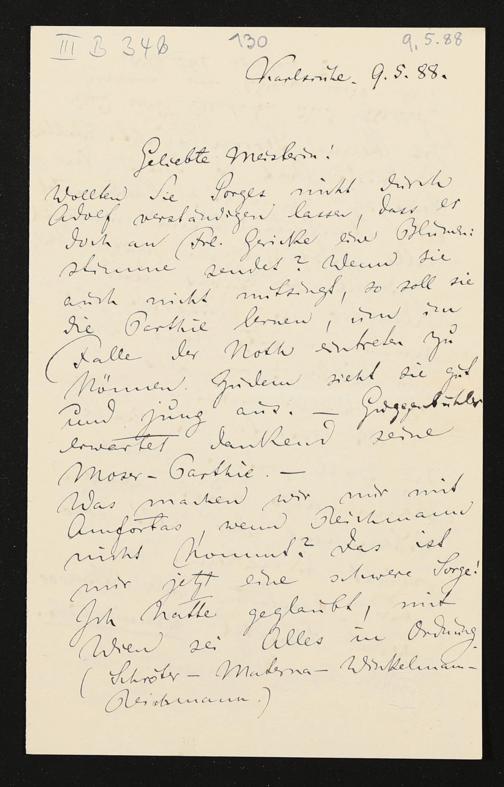 III B 346 130 9.5.88
Karlsruhe. 9.5.88.
Geliebte Meisterin!
Wollten Sie Porges nicht durch
Adolf verständigen lassen, dass er
doch an Frl. Gericke eine Blumen:
stimme sendet? Wenn sie
auch nicht mitsingt, so soll sie
die Parthie lernen, um im
Falle der Noth eintreten zu
können. Zudem sieht sie gut
und jung aus. — Guggenbühler
erwartet dankend seine
Moser-Parthie. —
Was machen wir nur mit
Amfortas, wenn Reichmann
nicht kommt? Das ist
mir jetzt eine schwere Sorge!
Ich hatte geglaubt, mit
Wien sei Alles in Ordnung
(Schröter - Materna - Winkelmann -
Reichmann.)